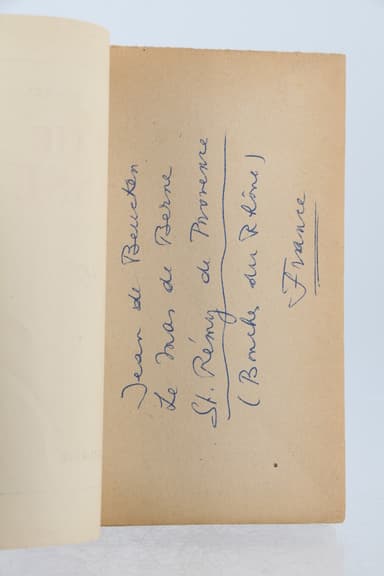 Jean de Beucken
Le Mas de Berne
St. Rémy de Provence
(Bouches du Rhône)
France